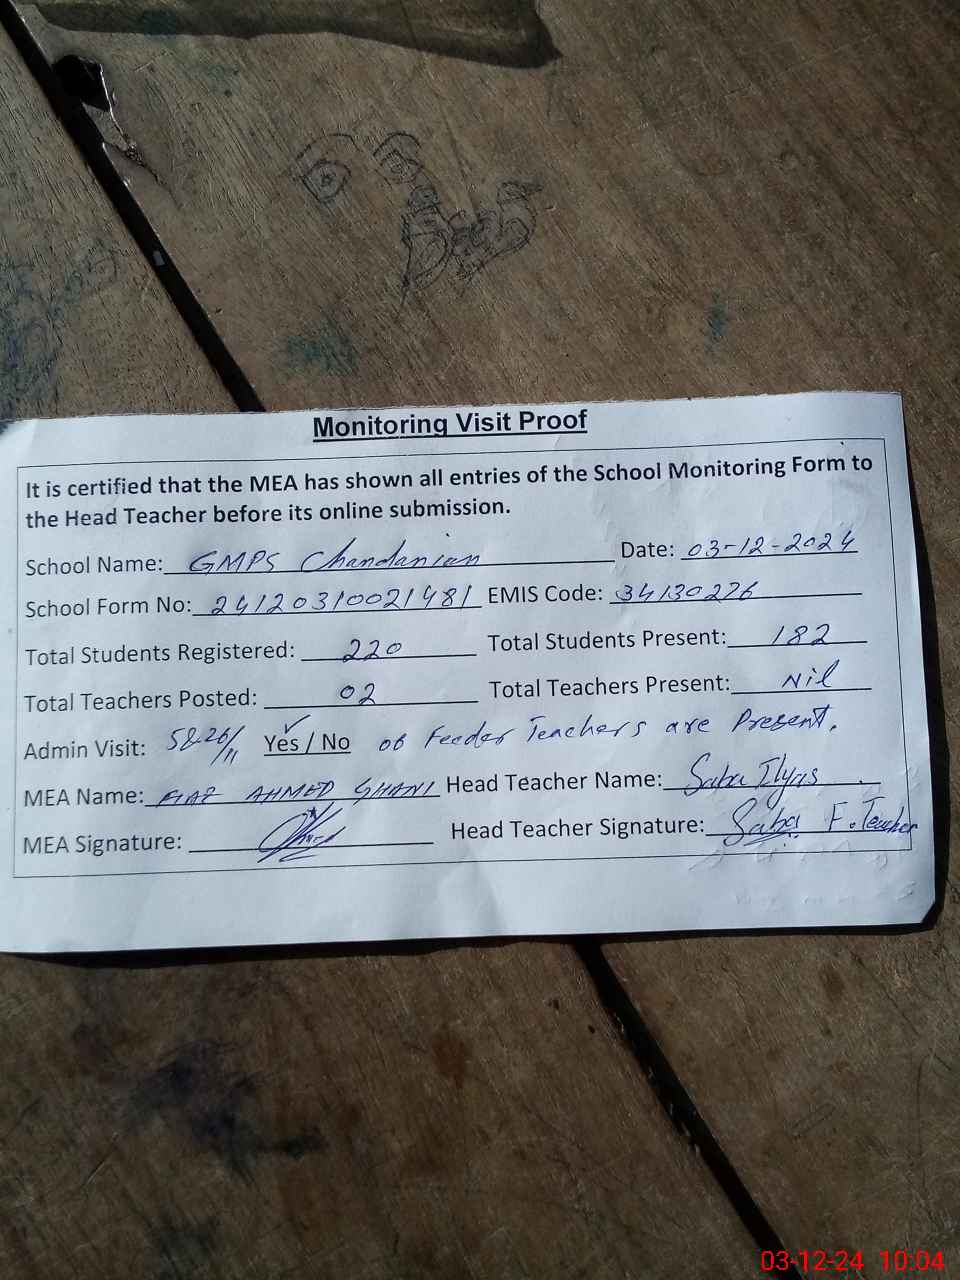 Monitoring Visit Proof
It is certified that the MEA has shown all entries of the School Monitoring Form to
the Head Teacher before its online submission.
School Name: GMPS Chandanian Date: 03-12-2024
School Form No: 24120310021481 EMIS Code: 34130276
Total Students Registered: 220 Total Students Present: 182
Total Teachers Posted: 02 Total Teachers Present: Nil
Admin Visit: 5&26/11 Yes / No 06 Feeder Teachers are Present.
MEA Name: FIAZ AHMED GHANI Head Teacher Name: Saba Ilyas
MEA Signature: Head Teacher Signature: Saba F.Teacher
03-12-24 10:04